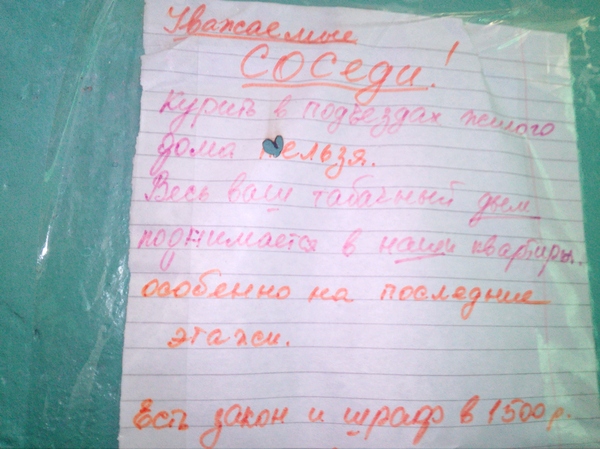 Уважаемые
СОСеди!
Курить в подъездах жилого
дома нельзя.
Весь ваш табачный дым
поднимается в наши квартиры.
особенно на последние
этажи.
Есть закон и штраф в 1500 р.